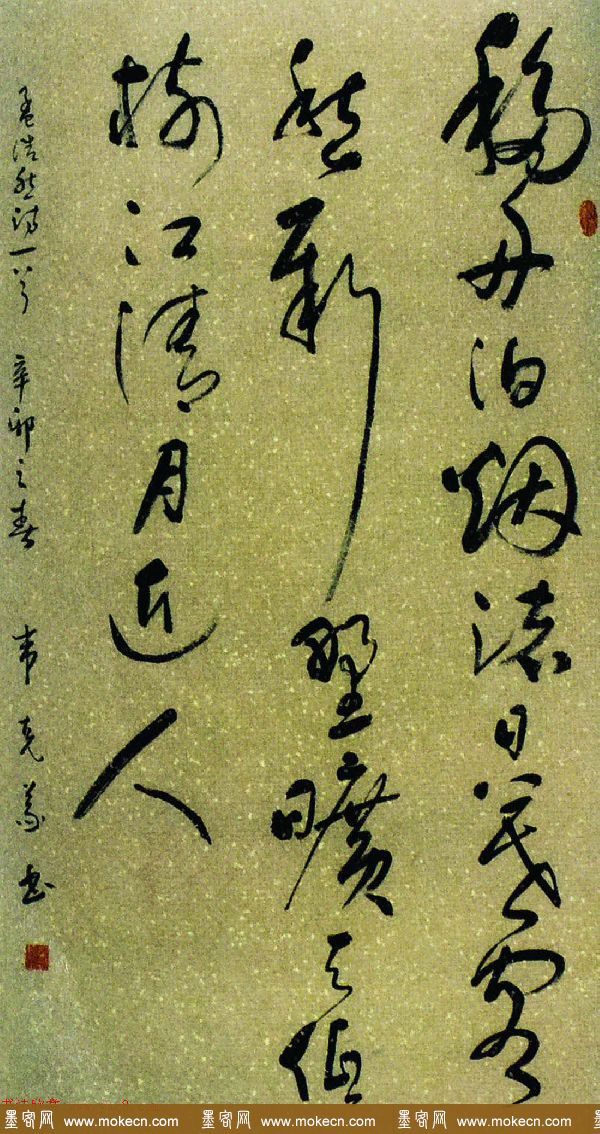 移舟泊烟渚日暮客
愁新野曠天低
樹江清月近人
孟浩然詩一首 辛卯之春 韋克義書
墨客网 www.mokecn.com 墨客网 www.mokecn.com 墨客网 www.mokecn.com 墨